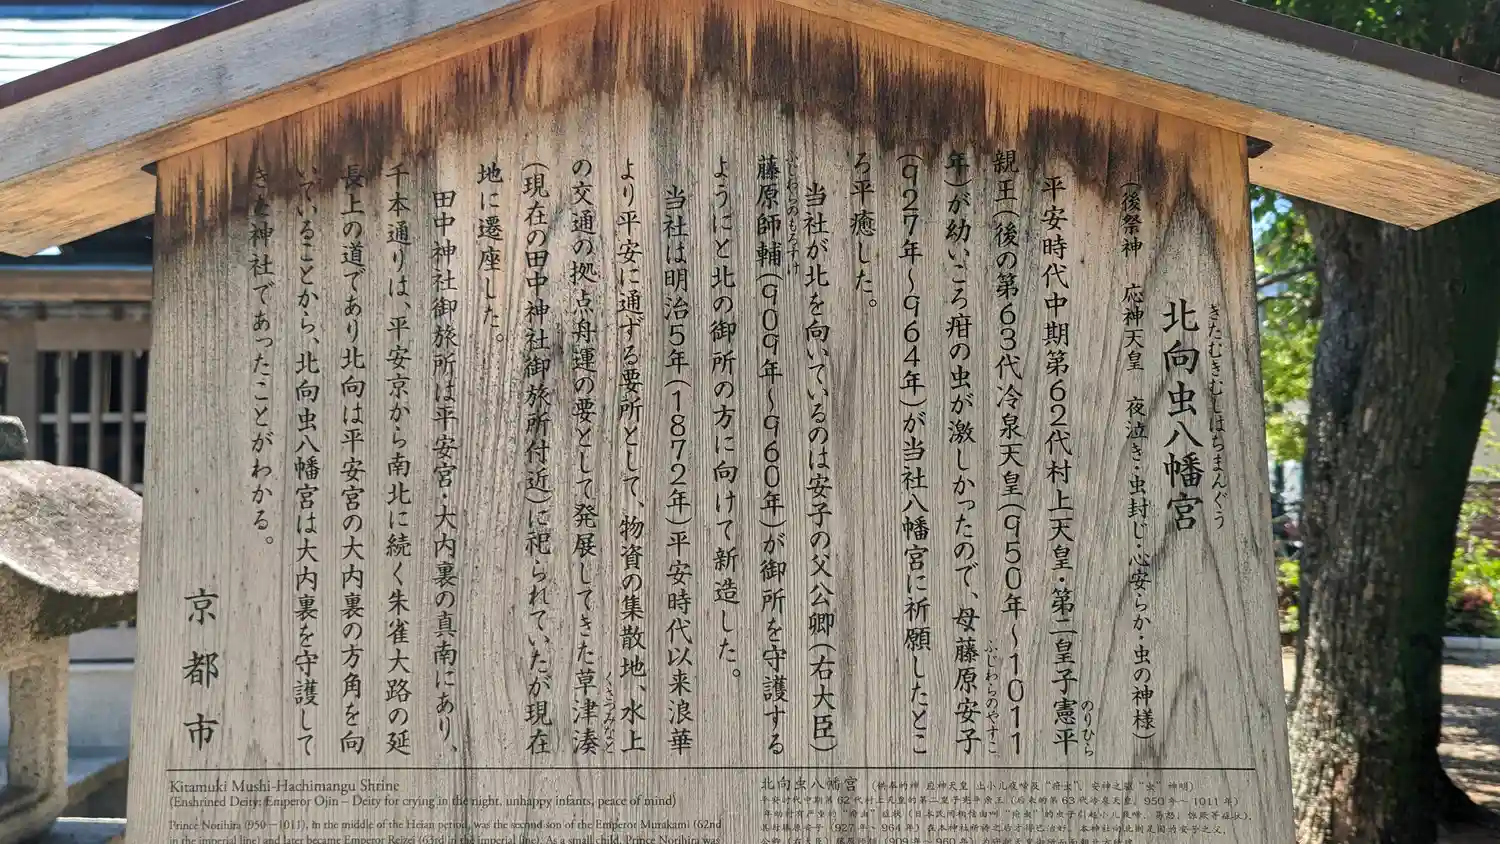 きたむきむしはちまんぐう
北向虫八幡宮
(後祭神 応神天皇 夜泣き・虫封じ・心安らか・虫の神様)
平安時代中期第62代村上天皇・第二皇子憲平
のりひら
親王(後の第63代冷泉天皇(950年〜1011
年)が幼いころ疳の虫が激しかったので、母藤原安子
ふじわらのやすこ
(927年〜964年)が当社八幡宮に祈願したとこ
ろ平癒した。
当社が北を向いているのは安子の父公卿(右大臣)
ふじわらのもろすけ
藤原師輔(909年〜960年)が御所を守護する
ようにと北の御所の方に向けて新造した。
当社は明治5年(1872年)平安時代以来浪華
より平安に通ずる要所として、物資の集散地、水上
の交通の拠点舟運の要として発展してきた草津湊
くさつみなと
(現在の田中神社御旅所付近)に祀られていたが現在
地に遷座した。
田中神社御旅所は平安宮・大内裏の真南にあり、
千本通りは、平安京から南北に続く朱雀大路の延
長上の道であり北向は平安宮の大内裏の方角を向
いていることから、北向虫八幡宮は大内裏を守護して
きた神社であったことがわかる。
京都市
Kitamuki Mushi-Hachimangu Shrine
(Enshrined Deity: Emperor Ojin – Deity for crying in the night, unhappy infants, peace of mind)
Prince Norihira (950—1011), in the middle of the Heian period, was the second son of the Emperor Murakami (62nd
in the imperial line) and later became Emperor Reizei (63rd in the imperial line). As a small child, Prince Norihira was
北向虫八幡宮